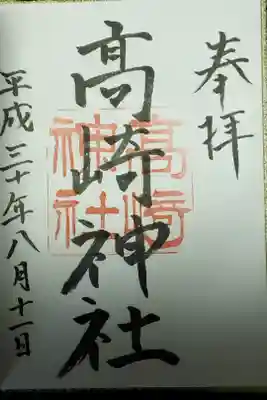 奉拝
髙崎神社
髙崎
神社
平成三十年八月十一日